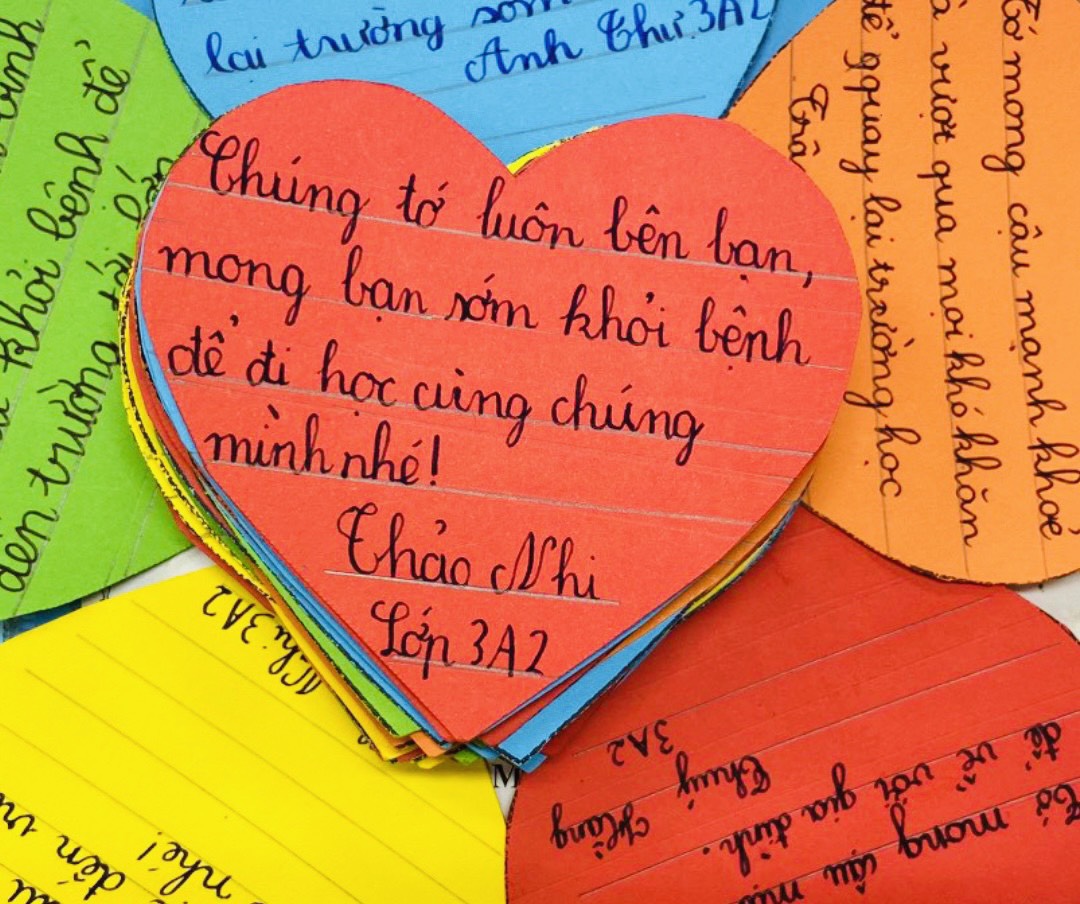 lại trường sớm
Anh Thư 3A2
Chúng tớ luôn bên bạn,
mong bạn sớm khỏi bệnh
để đi học cùng chúng
mình nhé!
Thảo Nhi
Lớp 3A2
khỏi bệnh để
đến trường
Tớ mong cậu mạnh khoẻ
vượt qua mọi khó khăn
để qquay lại trường học
Nhi 3A2
đến
nhé!
Tớ mong cậu
để về với gia đình.
Hằng
Thuý
3A2
M